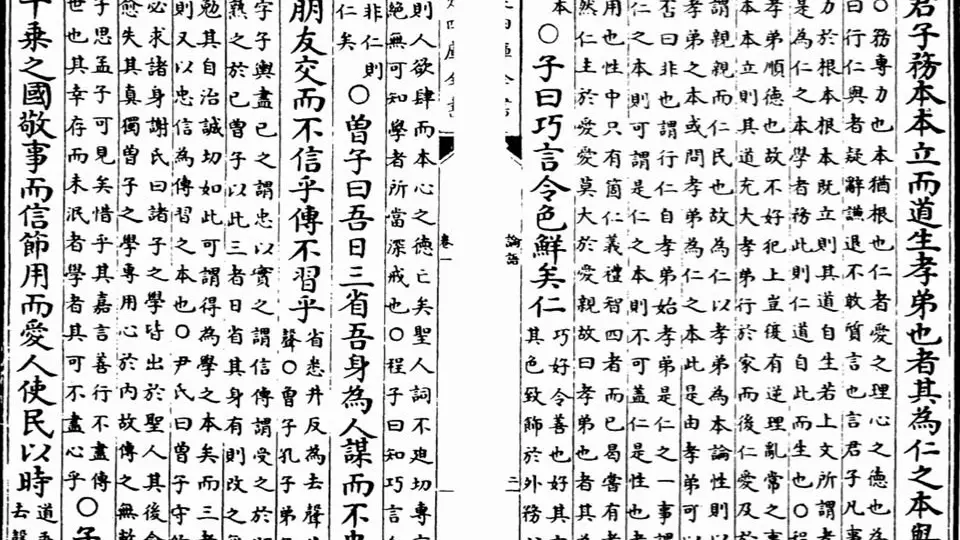 君子務本本立而道生孝弟也者其為仁之本與
○務專力也本猶根也仁者愛之理心之德也為
曰行仁與者疑辭謙退不敢質言也言君子凡事
力於根本根本既立則其道自生若上文所謂孝
是為仁之本學者務此則仁道自此而生也○程
孝弟順德也故不好犯上豈復有逆理亂常之事
本本立則其道充大孝弟行於家而後仁愛及於
謂親親而仁民也故為仁以孝弟為本論性則
孝弟之本或問孝弟為仁之本此是由孝弟可以
否曰非也謂行仁自孝弟始孝弟是仁之一事謂
仁之本則可謂是仁之本則不可蓋仁是性也
用也性中只有箇仁義禮智四者而已曷嘗有
然仁主於愛愛莫大於愛親故曰孝弟也者其
本
○子曰巧言令色鮮矣仁
巧好令善也好其
其色致飾於外務
論語
二
卷一
則人欲肆而本心之德亡矣聖人詞不迫切專
絕無可知學者所當深戒也○程子曰知巧言
非仁則
仁矣
○曾子曰吾日三省吾身為人謀而不忠
朋友交而不信乎傳不習乎
省悉井反為去聲
聲○曾子孔子弟
字子輿盡己之謂忠以實之謂信傳謂受之於
熟之於己曾子以此三者日省其身有則改之
勉其自治誠切如此可謂得為學之本矣而三者
則又以忠信為傳習之本也○尹氏曰曾子守
必求諸身謝氏曰諸子之學皆出於聖人其後
愈失其真獨曾子之學專用心於內故傳之無弊
子思孟子可見矣惜乎其嘉言善行不盡傳
世也其幸存而未泯者學者其可不盡心乎
○子
千乘之國敬事而信節用而愛人使民以時
道
去聲